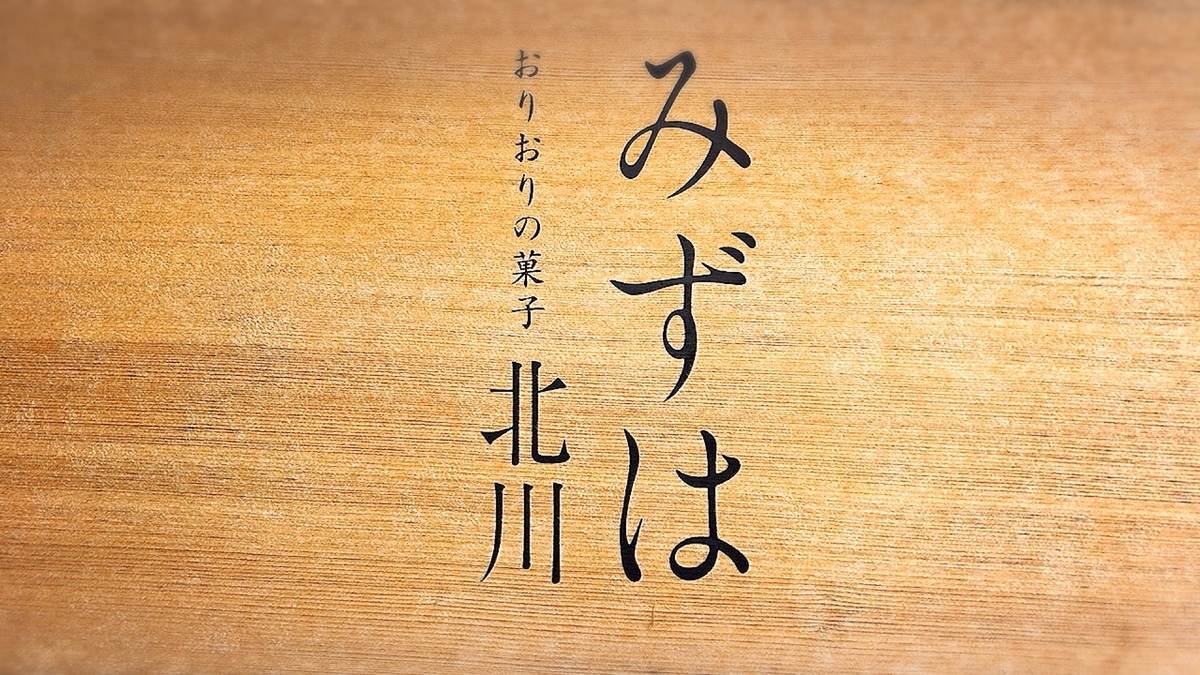 みずは
おりおりの菓子 北川